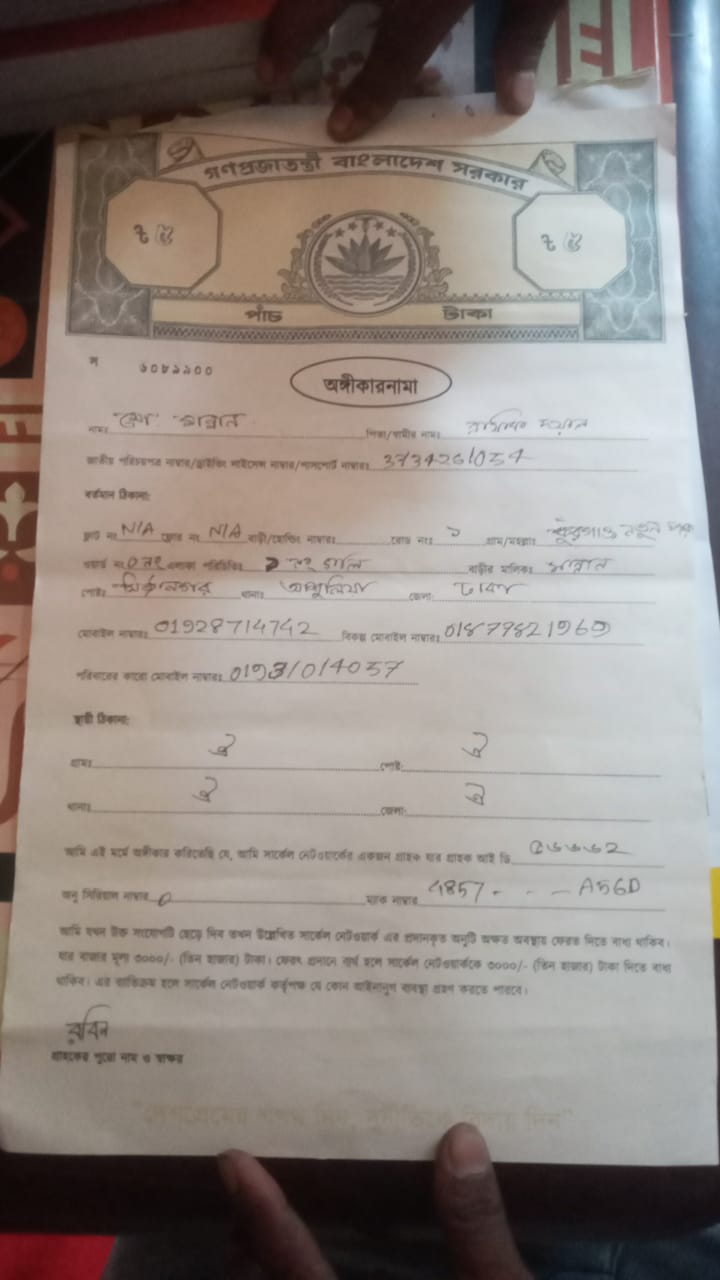 গণপ্রজাতন্ত্রী বাংলাদেশ সরকার
৳ ৫ ৳ ৫
পাঁচ টাকা
অঙ্গীকারনামা
নামঃ মোঃ মান্নান পিতা/স্বামীর নামঃ
জাতীয় পরিচয়পত্র নাম্বার/ড্রাইভিং লাইসেন্স নাম্বার/পাসপোর্ট নাম্বারঃ 3734261054
বর্তমান ঠিকানা:
ফ্লাট নং N/A ফ্লোর নং N/A বাড়ী/হোল্ডিং নাম্বারঃ রোড নংঃ গ্রাম/মহল্লাঃ নতুন পাড়া
ওয়ার্ড নং এলাকা পরিচিতিঃ নং গলি বাড়ীর মালিকঃ মান্নান
পোষ্টঃ মির্জানগর থানাঃ আশুলিয়া জেলা: ঢাকা
মোবাইল নাম্বারঃ 01928714742 বিকল্প মোবাইল নাম্বারঃ
পরিবারের কারো মোবাইল নাম্বারঃ 01931014057
স্থায়ী ঠিকানা:
গ্রামঃ ঐ পোষ্ট: ঐ
থানাঃ ঐ জেলা: ঐ
আমি এই মর্মে অঙ্গীকার করিতেছি যে, আমি সার্কেল নেটওয়ার্কের একজন গ্রাহক যার গ্রাহক আই ডি
অনু সিরিয়াল নাম্বার 0 ম্যাক নাম্বার 4857 - - - A56D
আমি যখন উক্ত সংযোগটি ছেড়ে দিব তখন উল্লেখিত সার্কেল নেটওয়ার্ক এর প্রদানকৃত অনুটি অক্ষত অবস্থায় ফেরত দিতে বাধ্য থাকিব।
যার বাজার মূল্য ৩০০০/- (তিন হাজার) টাকা। ফেরৎ প্রদানে ব্যর্থ হলে সার্কেল নেটওয়ার্ককে ৩০০০/- (তিন হাজার) টাকা দিতে বাধ্য
থাকিব। এর ব্যতিক্রম হলে সার্কেল নেটওয়ার্ক কর্তৃপক্ষ যে কোন আইনানুগ ব্যবস্থা গ্রহণ করতে পারবে।
রবিন
গ্রাহকের পুরো নাম ও স্বাক্ষর